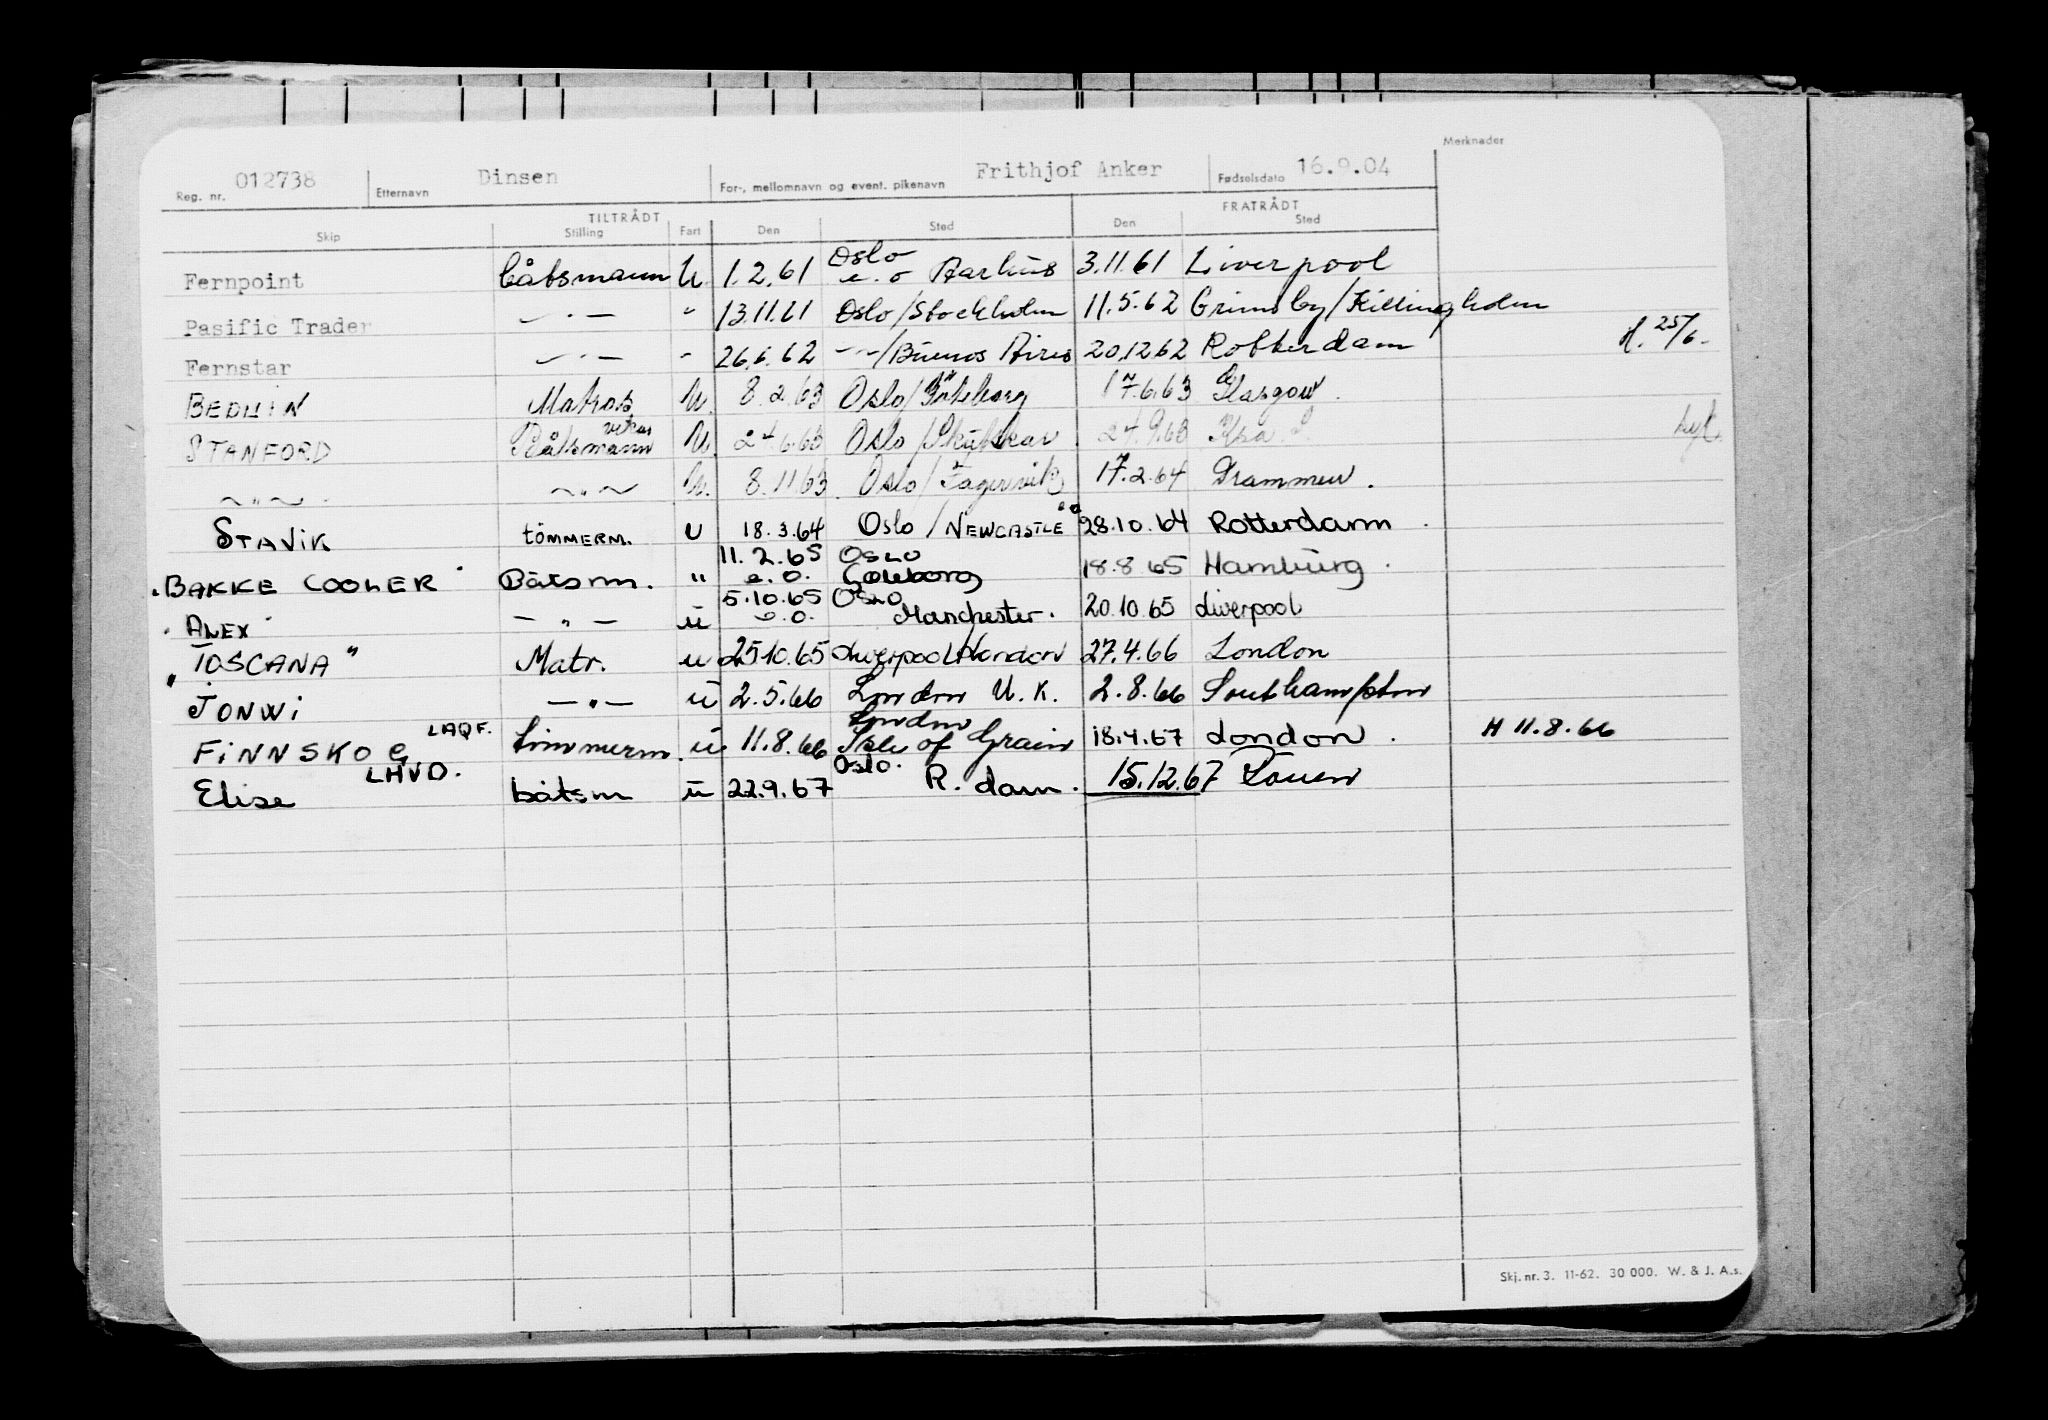 Merknader
Reg. nr. 012738 Etternavn Dinsen For-, mellomnavn og event. pikenavn Frithjof Anker Fødselsdato 16.9.04
TILTRÅDT FRATRÅDT
Skip Stilling Fart Den Sted Den Sted
Fernpoint båtsmann U. 1.2.61 Oslo e.o Aarhus 3.11.61 Liverpool
Pasific Trader — · — " 13.11.61 Oslo/Stockholm 11.5.62 Grimsby/Killingholm
Fernstar — · — " 26.6.62 -"-/Buenos Aires 20.12.62 Rotterdam H. 25/6-
BEDUIN Matros U. 8.2.63 Oslo/Göteborg 17.6.63 Glasgow.
STANFORD Båtsmann U. 24.6.63 Oslo/Skutskär 24.9.63
~ " ~ . ~ " ~ U. 8.11.63. Oslo/Fagervik 17.2.64 Drammen.
STAVIK tömmerm. U 18.3.64 Oslo/NEWCASTLE eo 28.10.64 Rotterdam
"BAKKE COOLER" Båtsm. " 11.2.65 e.o. OSLO Göteborg 18.8 65 Hamburg.
"ALEX" — " — ū 5.10.65 e.o. OSLO Manchester. 20.10.65 Liverpool
"TOSCANA" Matr. u 25.10.65 Liverpool/London 27.4.66 London
JONWI — " — ū 2.5.66 London U.K. 2.8.66 Southampton
FINNSKOG LAQF. tømmerm. ū 11.8.66 London Isle of Grain 18.4.67 London. H 11.8.66
Elise LHVD. båtsm ū 22.9.67 Oslo. R.dam. 15.12.67
Skj. nr. 3. 11-62. 30 000. W. & J. A.s.